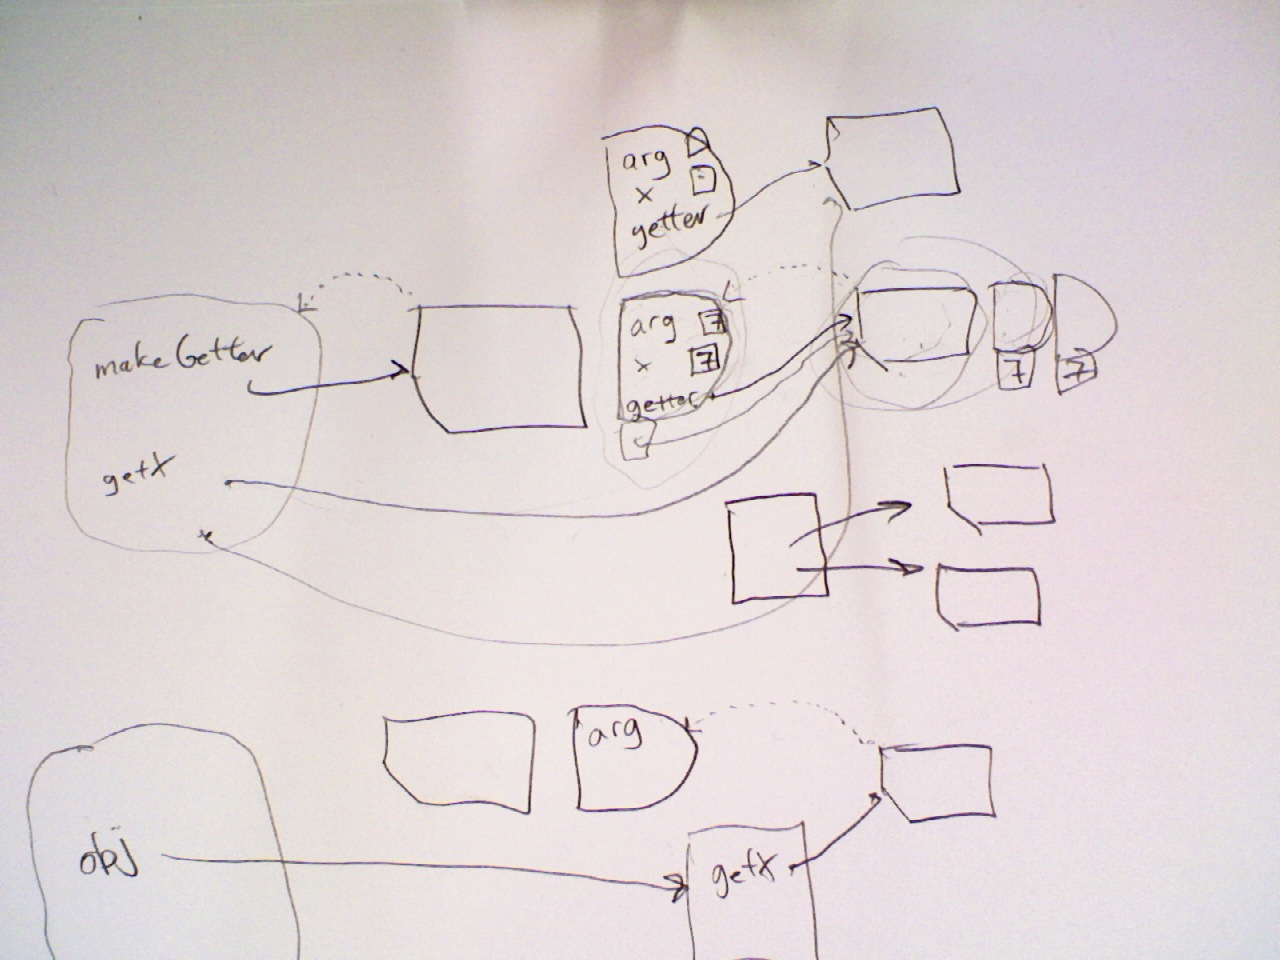 arg
x
getter
makeGetter
arg 7
x 7
getter
7
7
getX
arg
obj
getX